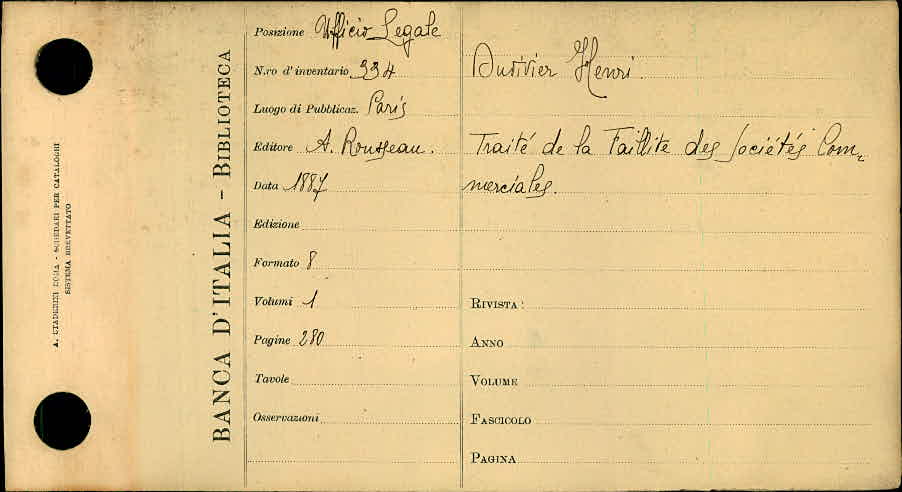 A. STADERINI ROMA - SCHEDARI PER CATALOGHI
SISTEMA BREVETTATO
BANCA D'ITALIA – BIBLIOTECA
Posizione Ufficio Legale
N.ro d'inventario 334
Luogo di Pubblicaz. Paris
Editore A. Rousseau.
Data 1887
Edizione
Formato 8
Volumi 1
Pagine 280
Tavole
Osservazioni
Duvivier Henri.
Traité de la Faillite des Sociétés Com-
merciales.
RIVISTA:
ANNO
VOLUME
FASCICOLO
PAGINA